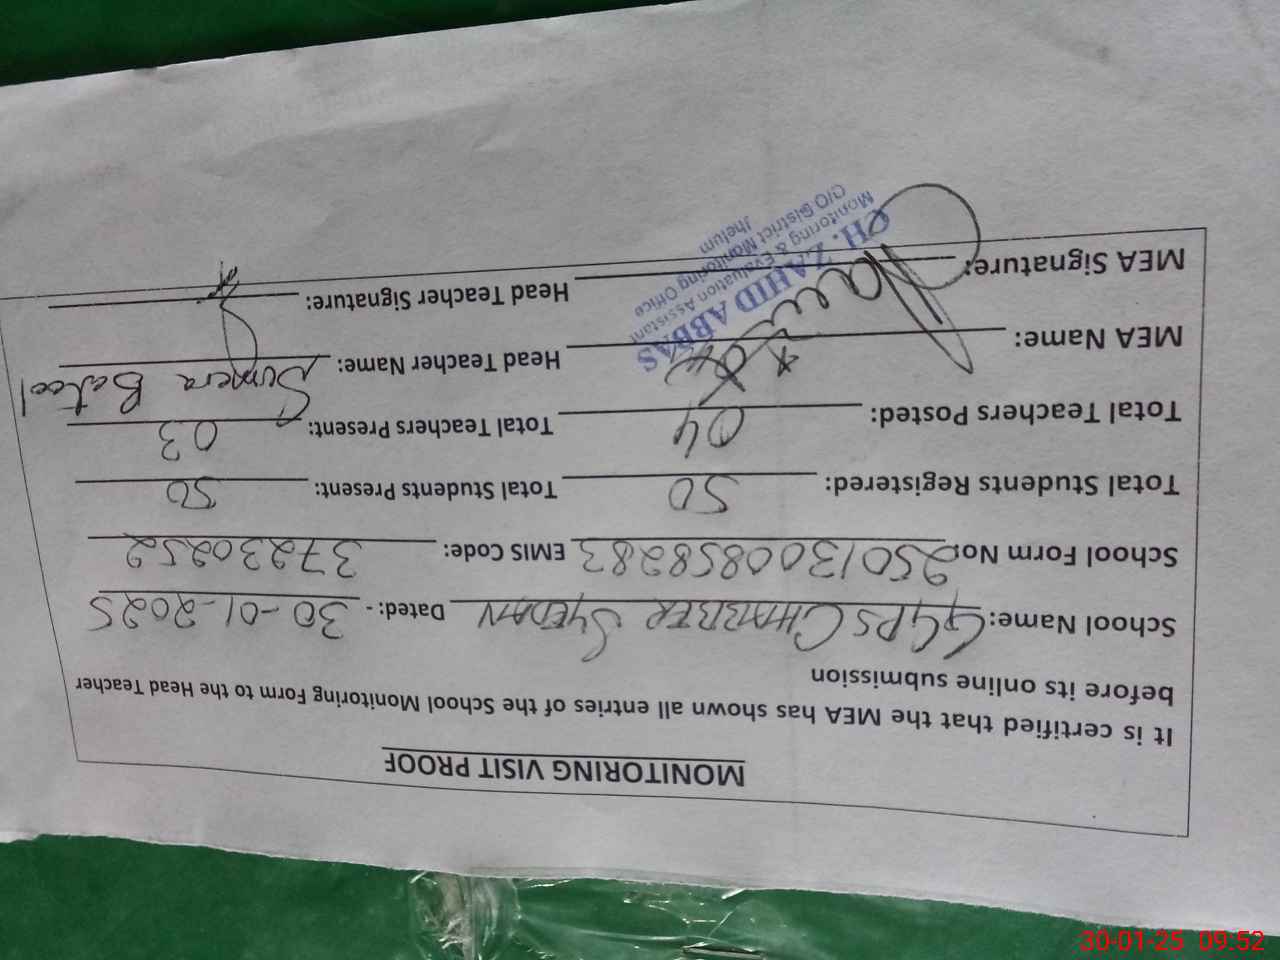 MONITORING VISIT PROOF
It is certified that the MEA has shown all entries of the School Monitoring Form to the Head Teacher
before its online submission
School Name: GGPS CHABBER SYEDAN Dated: - 30-01-2025
School Form No: 2501300858283 EMIS Code: 37230252
Total Students Registered: 50 Total Students Present: 50
Total Teachers Posted: 04 Total Teachers Present: 03
MEA Name: Head Teacher Name: Sumera Batool
MEA Signature: Head Teacher Signature:
CH. ZAHID ABBAS
Monitoring & Evaluation Assistant
C/O District Monitoring Office
Jhelum
30-01-25 09:52